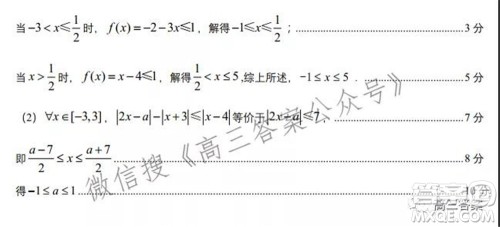 当 -3 < x ≤ 1/2 时, f(x) = -2 - 3x ≤ 1, 解得 -1 ≤ x ≤ 1/2 ; …… 3 分
当 x > 1/2 时, f(x) = x - 4 ≤ 1, 解得 1/2 < x ≤ 5, 综上所述, -1 ≤ x ≤ 5 . …… 5 分
(2) ∀x ∈ [-3,3], |2x - a| - |x + 3| ≤ |x - 4| 等价于 |2x - a| ≤ 7, …… 7 分
即 (a-7)/2 ≤ x ≤ (a+7)/2 …… 8 分
得 -1 ≤ a ≤ 1 …… 10 分
微信搜《高三答案公众号》
高三答案
MXQE.COM